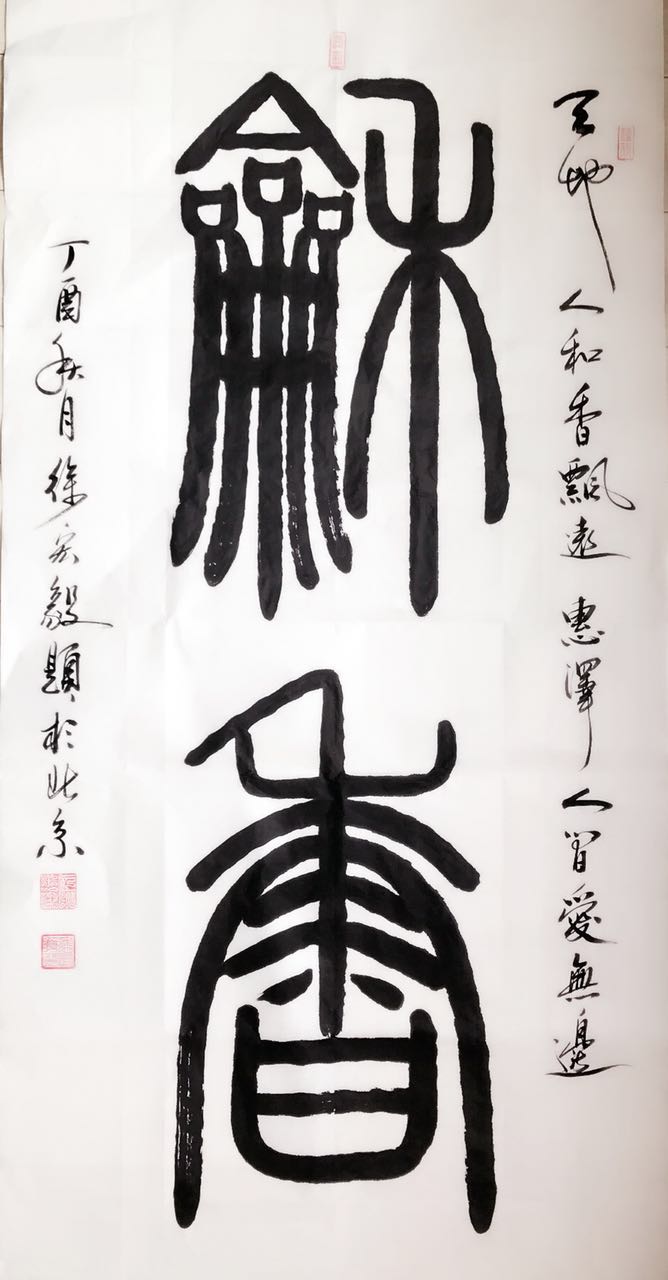 天地人和香飄遠惠澤人間愛無邊
龢香
丁酉秋月徐宏毅題於北京